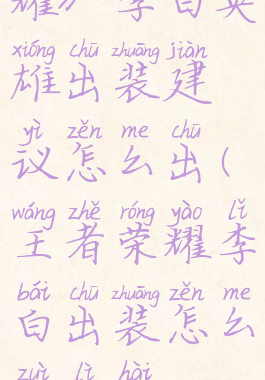 耀》李白英
xióng chū zhuāng jiàn
雄出装建
yì zěn me chū
议怎么出（
wáng zhě róng yào lǐ
王者荣耀李
bái chū zhuāng zěn me
白出装怎么
zuì lì hài